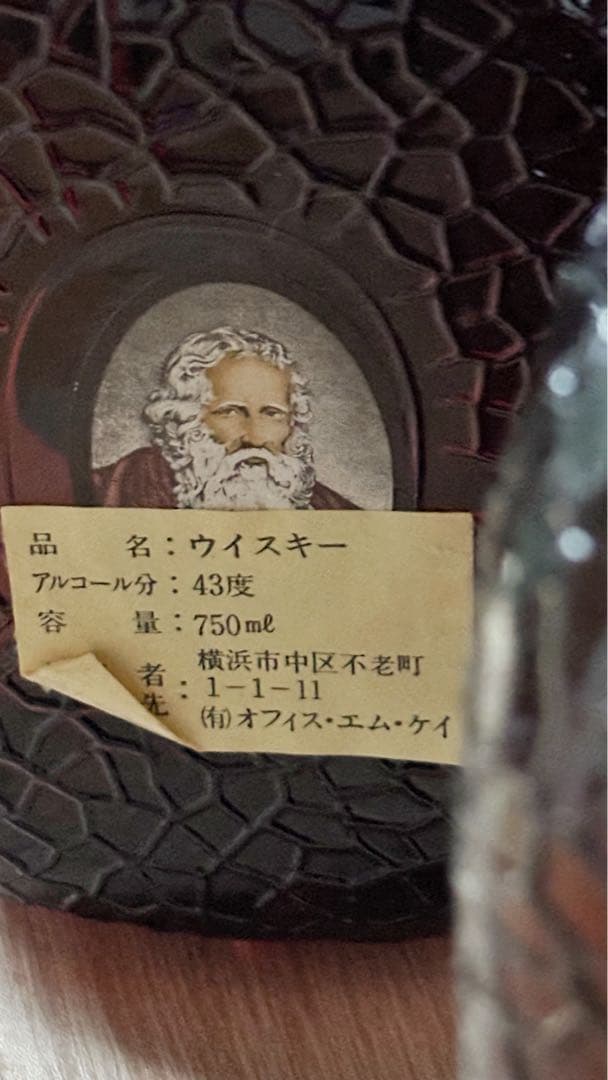 品　　名：ウイスキー
アルコール分：43度
容　　量：750ml
者：横浜市中区不老町
先　1－1－11
(有)オフィス・エム・ケイ